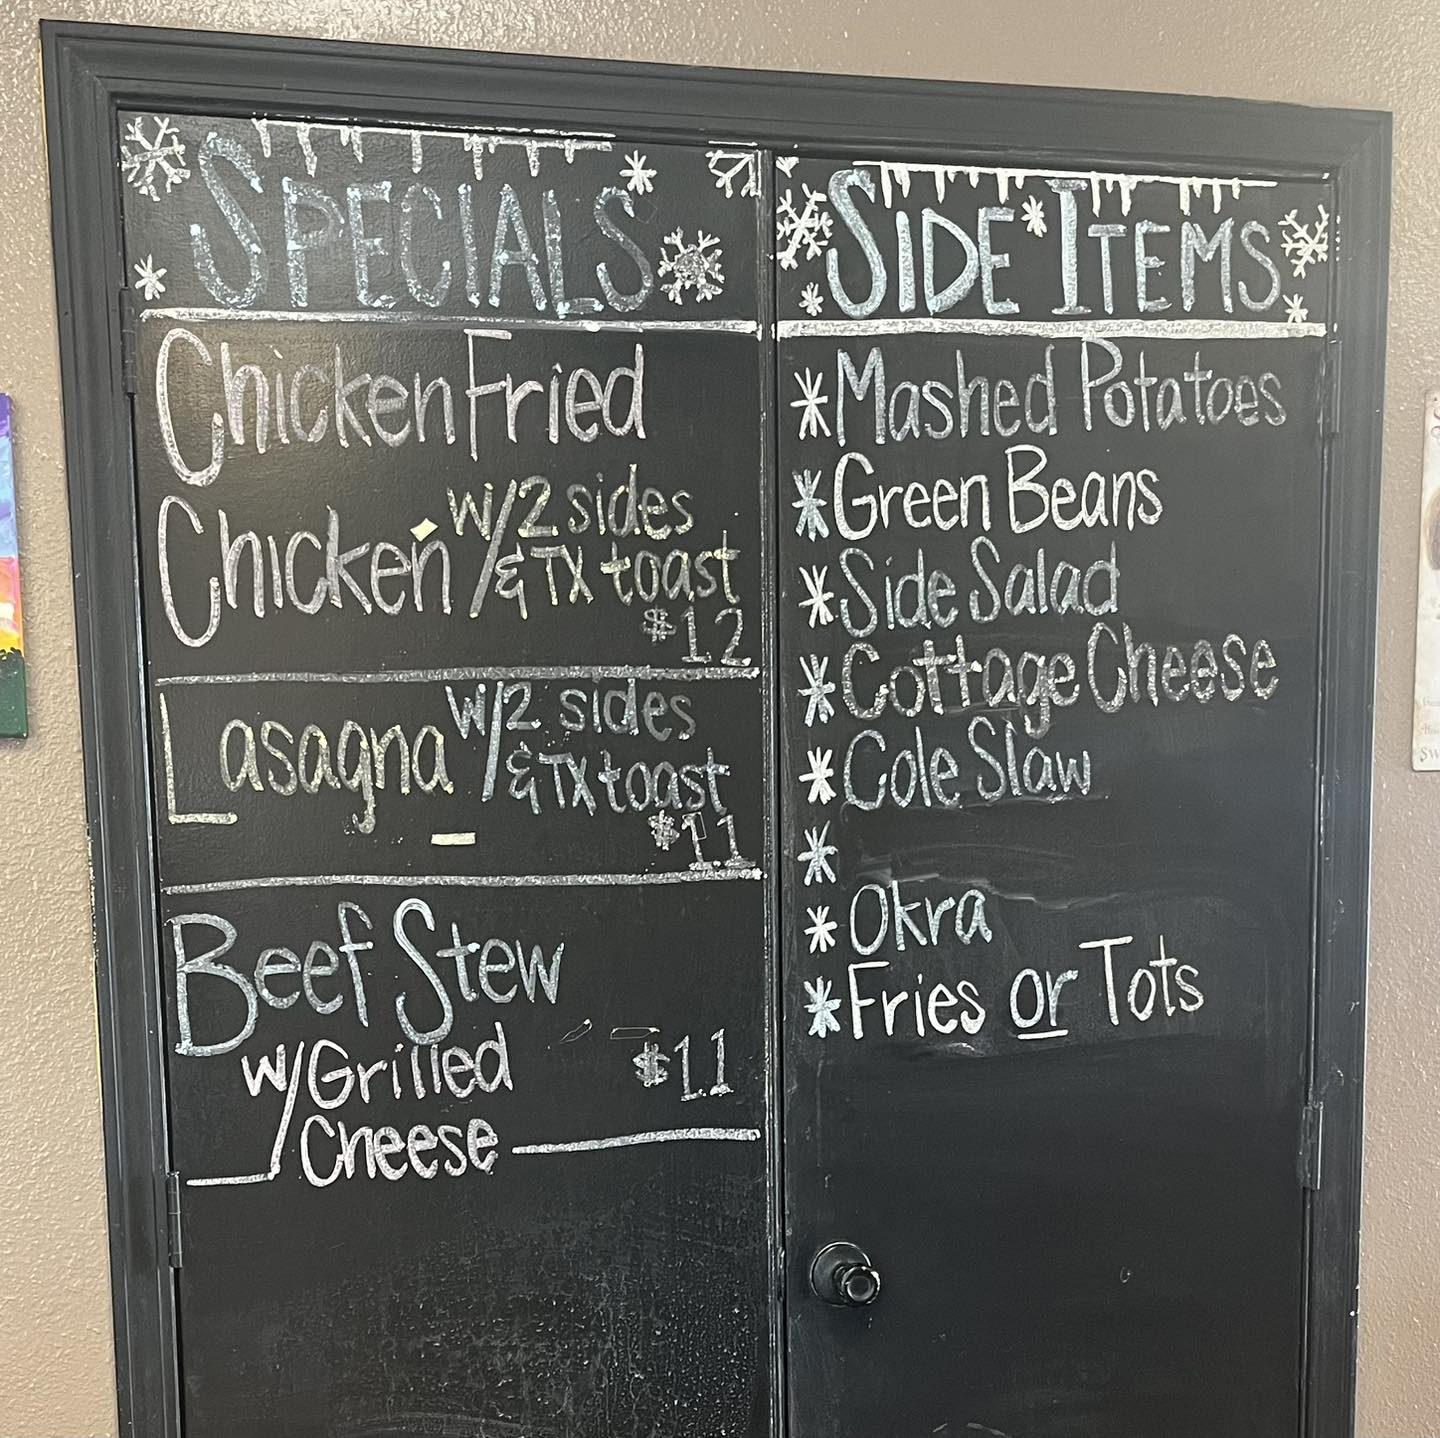 SPECIALS
Chicken Fried
Chicken w/2 sides
& TX toast
$12
Lasagna w/2 sides
& TX toast
$11
Beef Stew
w/Grilled $11
Cheese
SIDE ITEMS
Mashed Potatoes
Green Beans
Side Salad
Cottage Cheese
Cole Slaw
Okra
Fries or Tots